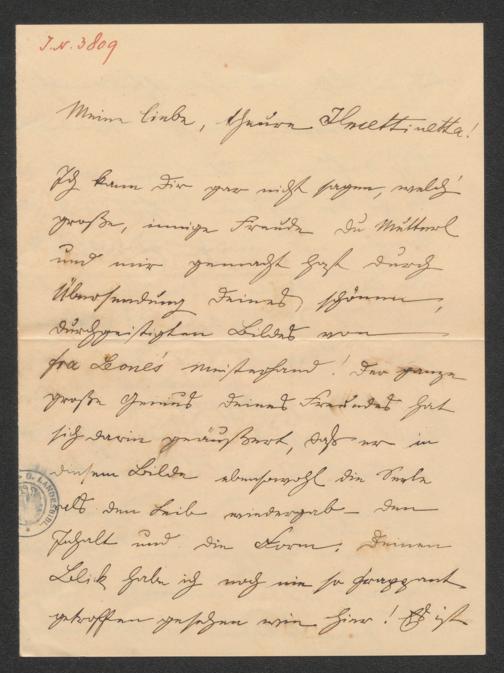 J. N. 3809
Meine liebe, theure
Ich kann Dir gar nicht sagen, welch'
große, innige Freude Du Mutterl
und mir gemacht hast durch
Übersendung Deines schönen,
durchgeistigten Bildes von
fra Leone's Meisterhand! Der ganze
große Genius Deines Freundes hat
sich darin geäußert, daß er in
diesem Bilde ebensowohl die Seele
als den Leib wiedergab – den
Inhalt und die Form. Deinen
Blick habe ich noch nie so frappant
getroffen gesehen wie hier! Es ist